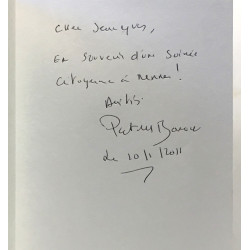 Cher Jean-Yves,
En souvenir d'une soirée
citoyenne à Rennes !
Amitiés
le 10/1/2011